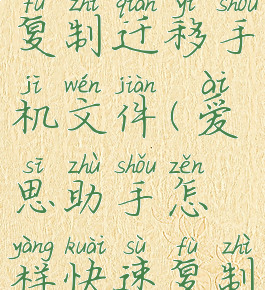 fù zhì qiān yí shǒu
复制迁移手
jī wén jiàn ài
机文件(爱
sī zhù shǒu zěn
思助手怎
yàng kuài sù fù zhì
样快速复制